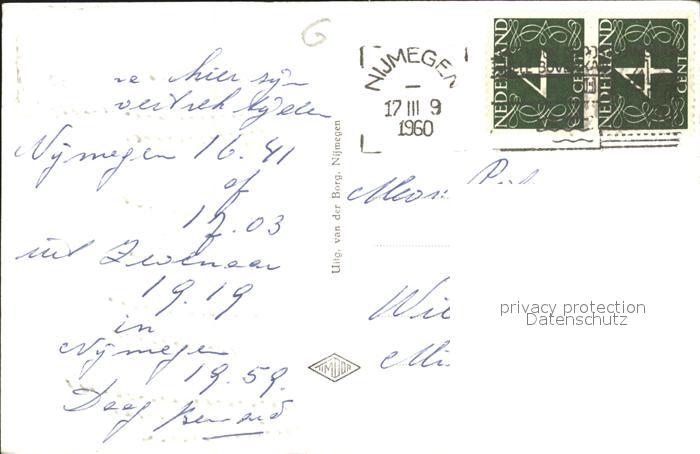 6
hier zijn
vertrek tijden
Nijmegen 16.41
of
17.03
uit Zevenaar
19.19
in
Nijmegen
19.59.
Daag Bernard
Uitg. van der Borg, Nijmegen
TIMDOR
NIJMEGEN
17 III 9
1960
NEDERLAND 4 CENT
NEDERLAND 4 CENT
privacy protection
Datenschutz